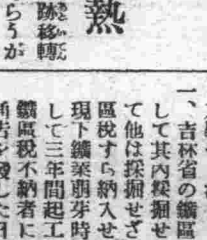 熱
跡移轉
らうが
一、吉林省の鑛區
して其內採掘せ
て他は採掘せざ
區稅すら納入せ
現下鑛業萠芽時
して三年間起工
鑛區稅不納者に